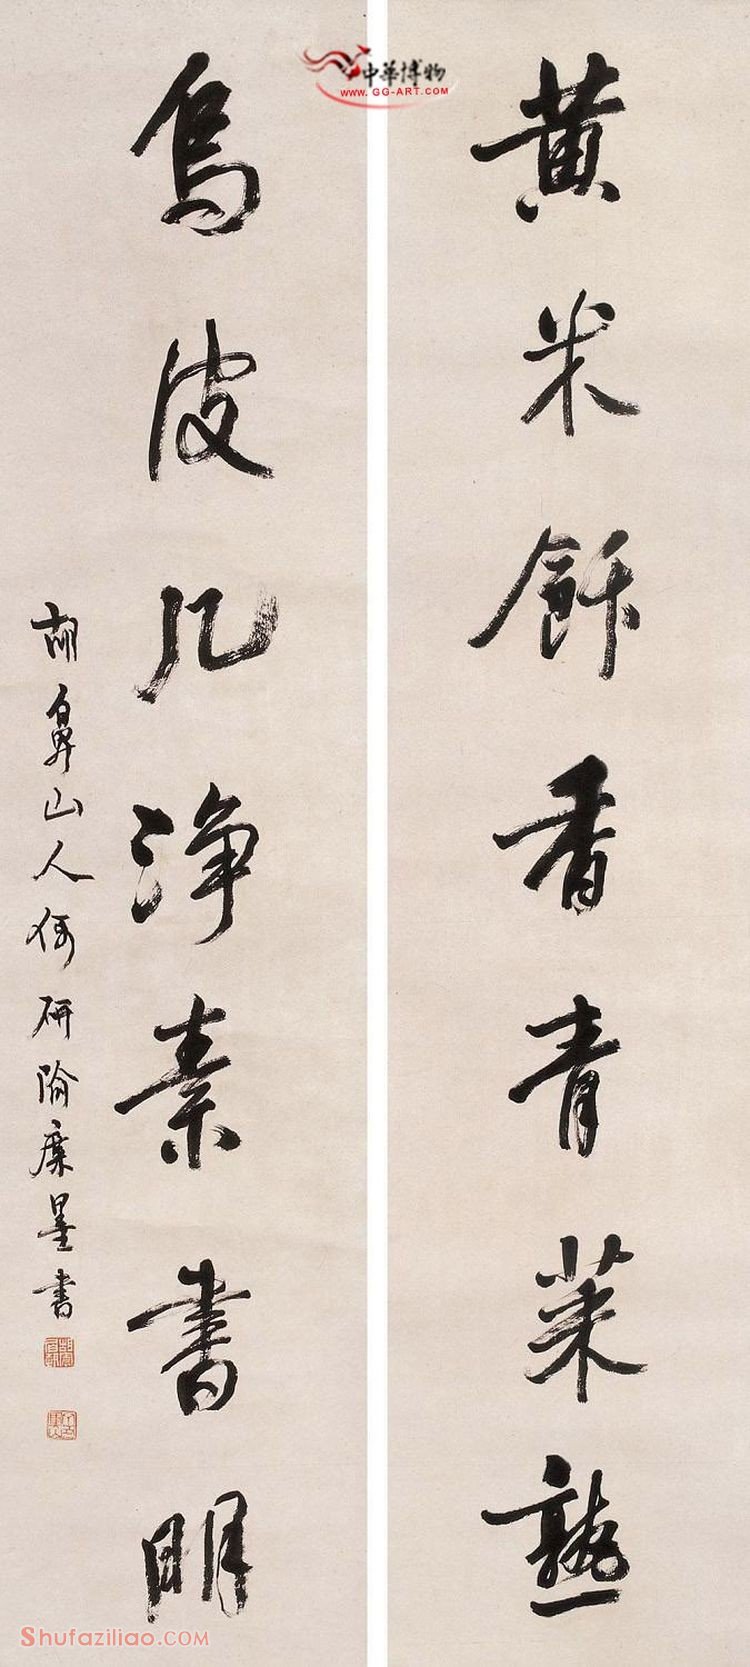 中華博物
WWW.GG-ART.COM
黄米飰香青菜熟
烏皮几淨素書明
胡鼻山人研隃麋墨書
Shufaziliao.COM